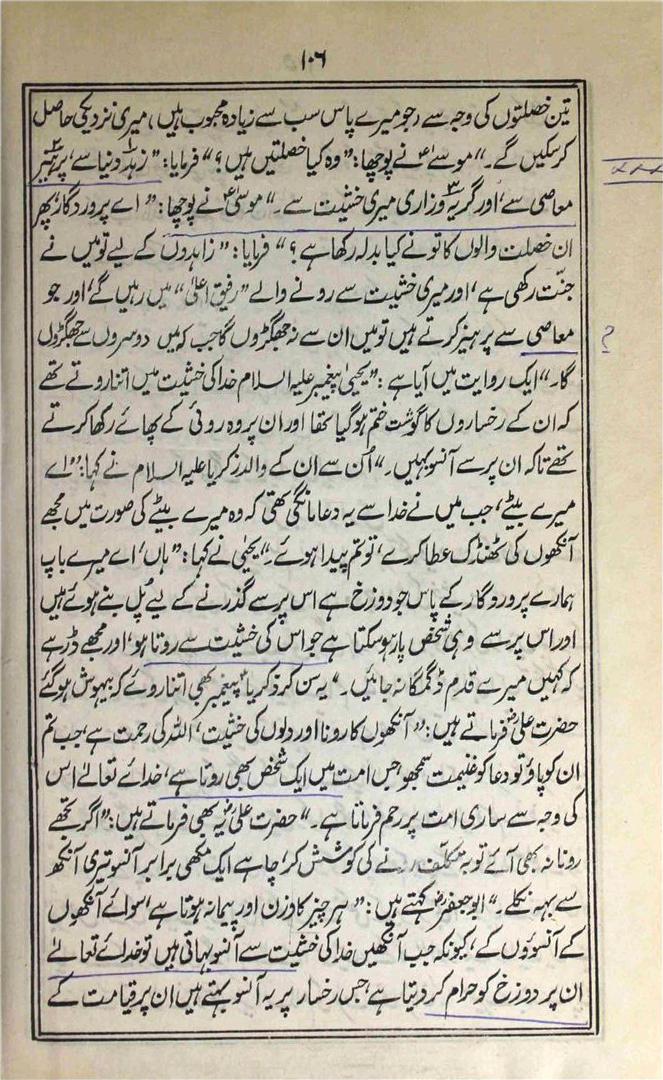 ۱۰۶
تین خصلتوں کی وجہ سے، جو میرے پاس سب سے زیادہ محبوب ہیں، میری نزدیکی حاصل
کر سکیں گے۔“ موسےٰؑ نے پوچھا: ”وہ کیا خصلتیں ہیں؟“ فرمایا: ”زہد دنیا سے، پرہیز
معاصی سے، اور گریہ وزاری میری خشیت سے۔“ موسیٰؑ نے پوچھا: ”اے پروردگار، پھر
ان خصلت والوں کا تو نے کیا بدلہ رکھا ہے؟“ فرمایا: ”زاہدوں کے لیے تو میں نے
جنّت رکھی ہے، اور میری خشیت سے رونے والے ”رفیق اعلیٰ“ میں رہیں گے، اور جو
معاصی سے پرہیز کرتے ہیں تو میں ان سے نہ جھگڑوں گا جب کہ میں دوسروں سے جھگڑوں
گا۔“ ایک روایت میں آیا ہے: ”یحییٰ پیغمبر علیہ السلام خدا کی خشیت میں اتنا روتے تھے
کہ ان کے رخساروں کا گوشت ختم ہو گیا تھا اور ان پر وہ روئی کے پھائے رکھا کرتے
تھے تاکہ ان پر سے آنسو بہیں۔“ اُن سے ان کے والد زکریا علیہ السلام نے کہا: ”اے
میرے بیٹے، جب میں نے خدا سے یہ دعا مانگی تھی کہ وہ میرے بیٹے کی صورت میں مجھے
آنکھوں کی ٹھنڈک عطا کرے، تو تم پیدا ہوئے۔“ یحییٰ نے کہا: ”ہاں، اے میرے باپ
ہمارے پروردگار کے پاس جو دوزخ ہے اس پر سے گذرنے کے لیے پُل بنے ہوئے ہیں
اور اس پر سے وہی شخص پار ہو سکتا ہے جو اس کی خشیت سے روتا ہو، اور مجھے ڈر ہے
کہ کہیں میرے قدم ڈگمگا نہ جائیں۔“ یہ سن کر زکریاؑ پیغمبر بھی اتنا روئے کہ بیہوش ہو گئے
حضرت علیؓ فرماتے ہیں: ”آنکھوں کا رونا اور دلوں کی خشیت، اللہ کی رحمت ہے، جب تم
ان کو پاؤ تو دعا کو غنیمت سمجھو جس امت میں ایک شخص بھی روتا ہے، خدائے تعالےٰ اس
کی وجہ سے ساری امت پر رحم فرماتا ہے۔“ حضرت علیؓ یہ بھی فرماتے ہیں: ”اگر تجھے
رونا نہ بھی آئے تو بہ تکلّف رونے کی کوشش کر، چاہے ایک مکھی برابر آنسو تیری آنکھ
سے بہہ نکلے۔“ ابو جعفرؓ کہتے ہیں: ”ہر چیز کا وزن اور پیمانہ ہوتا ہے، سوائے آنکھوں
کے آنسوؤں کے، کیونکہ جب آنکھیں خدا کی خشیت سے آنسو بہاتی ہیں تو خدائے تعالےٰ
ان پر دوزخ کو حرام کر دیتا ہے، جس رخسار پر یہ آنسو بہتے ہیں ان پر قیامت کے